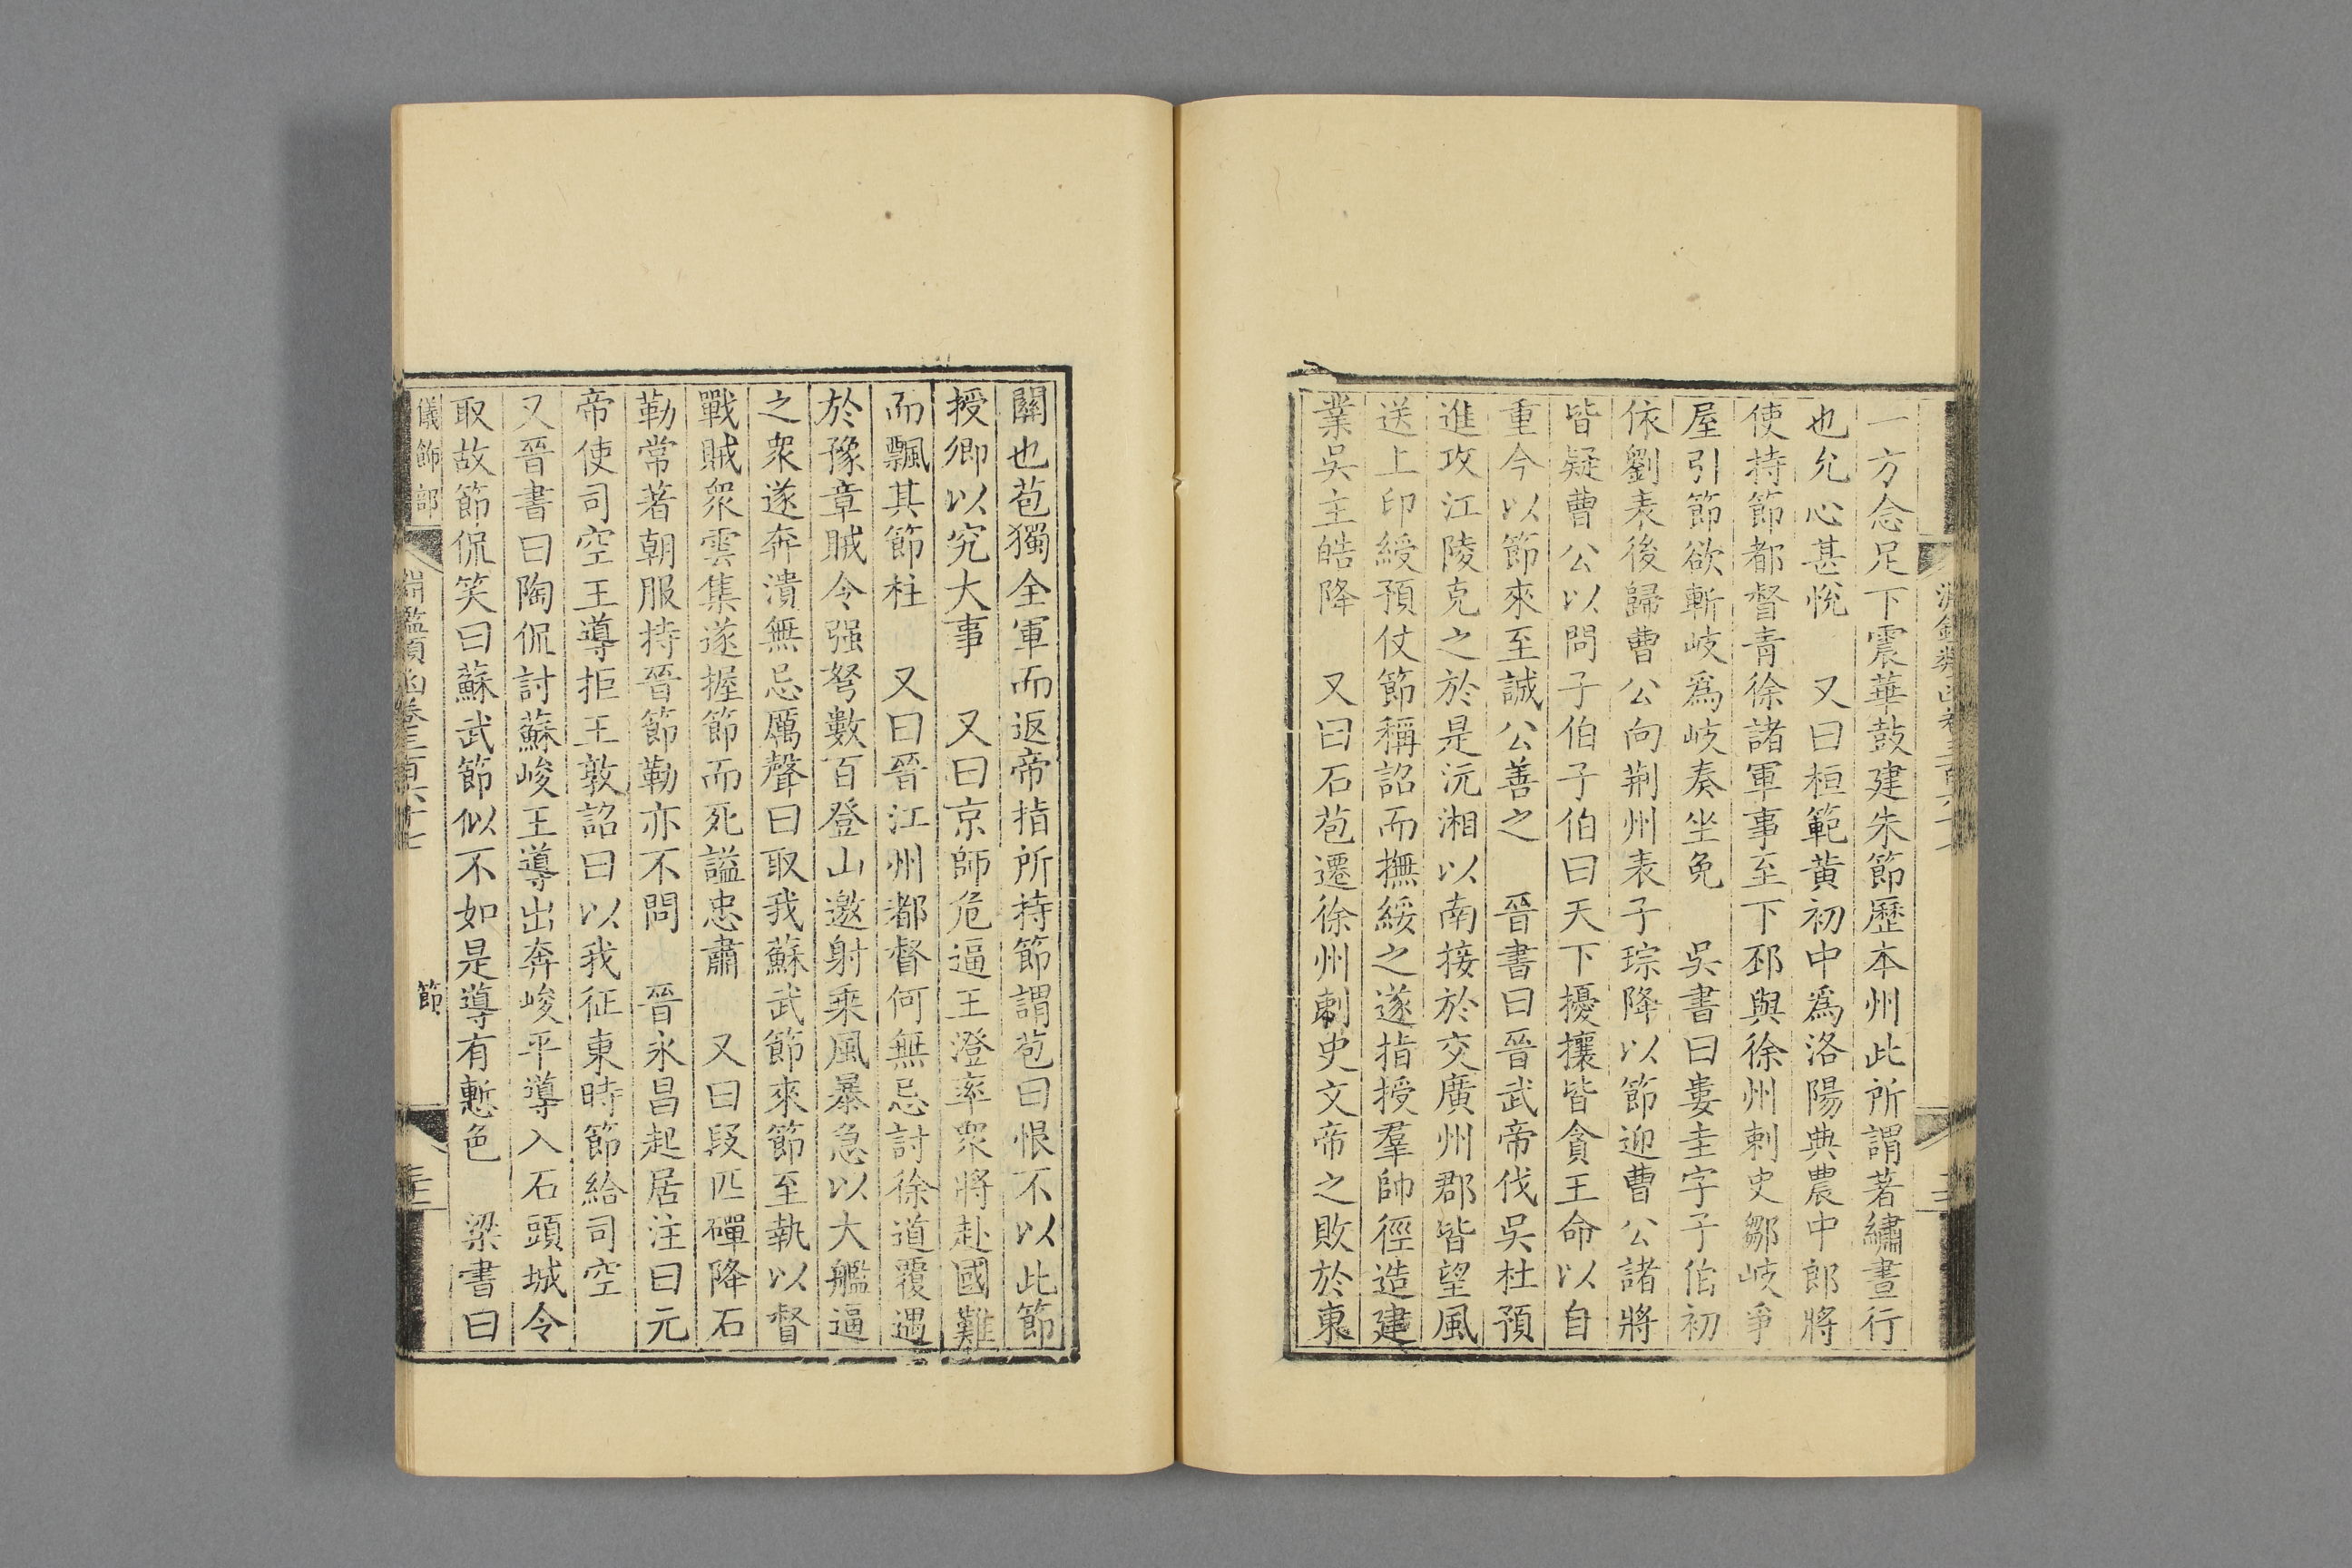 一方念足下震華鼓建朱節歷本州此所謂著繡晝行
也允心甚悅　又曰桓範黄初中爲洛陽典農中郎將
使持節都督青徐諸軍事至下邳與徐州刺史鄒岐爭
屋引節欲斬岐爲岐奏坐免　吳書曰婁圭字子伯初
依劉表後歸曹公向荆州表子琮降以節迎曹公諸將
皆疑曹公以問子伯子伯曰天下擾攘皆貪王命以自
重今以節來至誠公善之　晉書曰晉武帝伐吳杜預
進攻江陵克之於是沅湘以南接於交廣州郡皆望風
送上印綬預仗節稱詔而撫綏之遂指授羣帥徑造建
業吳主皓降　又曰石苞遷徐州刺史文帝之敗於東
關也苞獨全軍而返帝指所持節謂苞曰恨不以此節
授卿以究大事　又曰京師危逼王澄率衆將赴國難
而飄其節柱　又曰晉江州都督何無忌討徐道覆遇
於豫章賊令强弩數百登山邀射乘風暴急以大艦逼
之衆遂奔潰無忌厲聲曰取我蘇武節來節至執以督
戰賊衆雲集遂握節而死謚忠肅　又曰段匹磾降石
勒常著朝服持晉節勒亦不問　晉永昌起居注曰元
帝使司空王導拒王敦詔曰以我征東時節給司空
又晉書曰陶侃討蘇峻王導出奔峻平導入石頭城令
取故節侃笑曰蘇武節似不如是導有慙色　梁書曰
儀飾部
淵鑑類函卷三百六十七
節